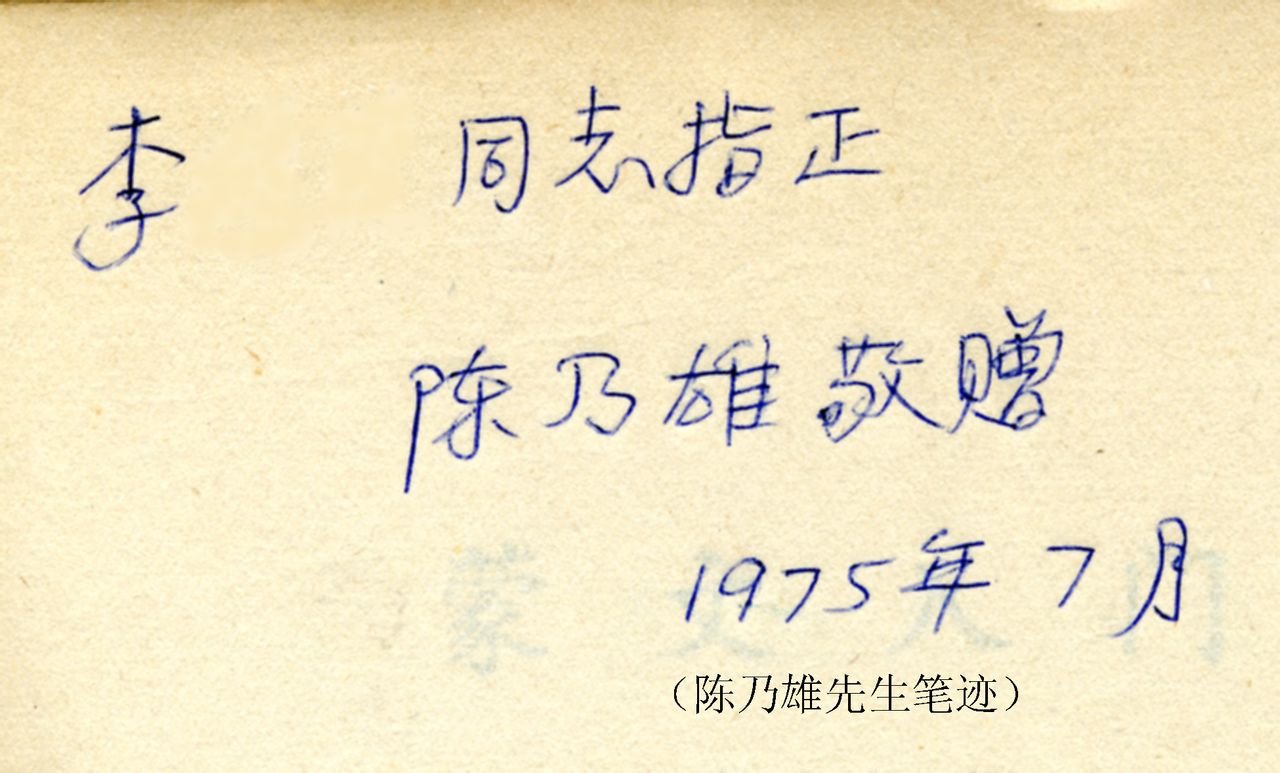 李 同志指正
陈乃雄敬赠
1975年7月
蒙文入门
(陈乃雄先生笔迹)